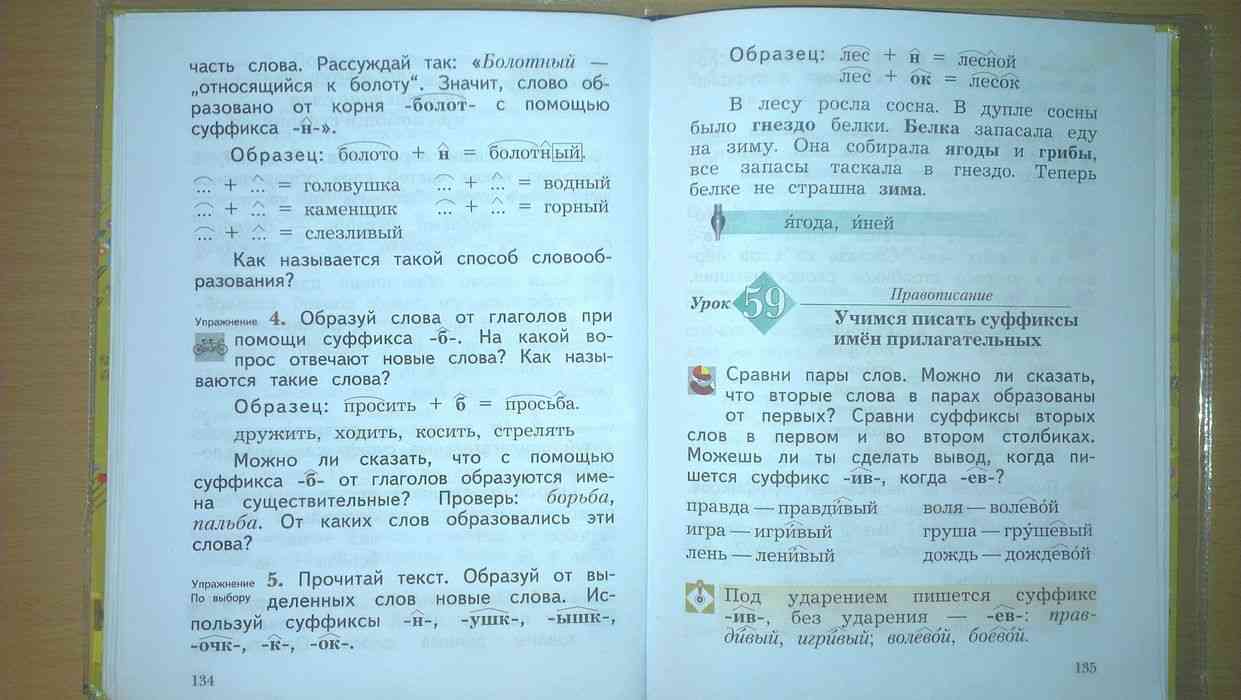 часть слова. Рассуждай так: «Болотный —
„относящийся к болоту“. Значит, слово об-
разовано от корня -болот- с помощью
суффикса -н-».
Образец: болото + н = болотный.
... + ... = головушка ... + ... = водный
... + ... = каменщик ... + ... = горный
... + ... = слезливый
Как называется такой способ словооб-
разования?
Упражнение 4. Образуй слова от глаголов при
помощи суффикса -б-. На какой во-
прос отвечают новые слова? Как назы-
ваются такие слова?
Образец: просить + б = просьба.
дружить, ходить, косить, стрелять
Можно ли сказать, что с помощью
суффикса -б- от глаголов образуются име-
на существительные? Проверь: борьба,
пальба. От каких слов образовались эти
слова?
Упражнение 5. Прочитай текст. Образуй от вы-
По выбору деленных слов новые слова. Ис-
пользуй суффиксы -н-, -ушк-, -ышк-,
-очк-, -к-, -ок-.
134
Образец: лес + н = лесной
лес + ок = лесок
В лесу росла сосна. В дупле сосны
было гнездо белки. Белка запасала еду
на зиму. Она собирала ягоды и грибы,
все запасы таскала в гнездо. Теперь
белке не страшна зима.
я́года, и́ней
Урок 59 Правописание
Учимся писать суффиксы
имён прилагательных
Сравни пары слов. Можно ли сказать,
что вторые слова в парах образованы
от первых? Сравни суффиксы вторых
слов в первом и во втором столбиках.
Можешь ли ты сделать вывод, когда пи-
шется суффикс -ив-, когда -ев-?
правда — правди́вый воля — волево́й
игра — игри́вый груша — гру́шевый
лень — лени́вый дождь — дождево́й
Под ударением пишется суффикс
-и́в-, без ударения — -ев-: прав-
ди́вый, игри́вый; волево́й, боево́й.
135